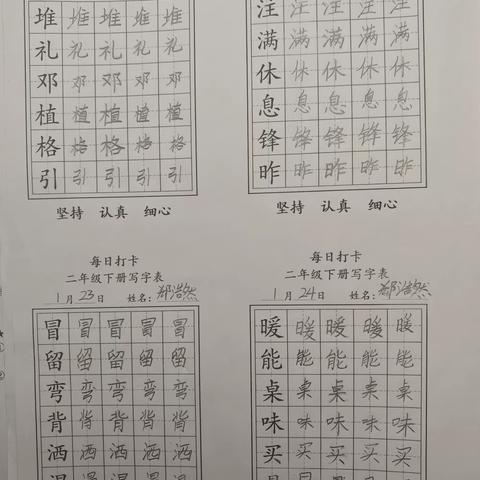 堆 堆 堆 堆 堆
礼 礼 礼 礼 礼
邓 邓 邓 邓 邓
植 植 植 植 植
格 格 格 格 格
引 引 引 引 引
坚持 认真 细心
注 注 注 注 注
满 满 满 满 满
休 休 休 休 休
息 息 息 息 息
锋 锋 锋 锋 锋
昨 昨 昨 昨 昨
坚持 认真 细心
每日打卡
二年级下册写字表
1月23日 姓名：郑浩然
冒 冒 冒 冒 冒
留 留 留 留 留
弯 弯 弯 弯 弯
背 背 背 背 背
洒 洒 洒 洒 洒
温 温 温 温 温
每日打卡
二年级下册写字表
1月24日 姓名：郑浩然
暖 暖 暖 暖 暖
能 能 能 能 能
桌 桌 桌 桌 桌
味 味 味 味 味
买 买 买 买 买